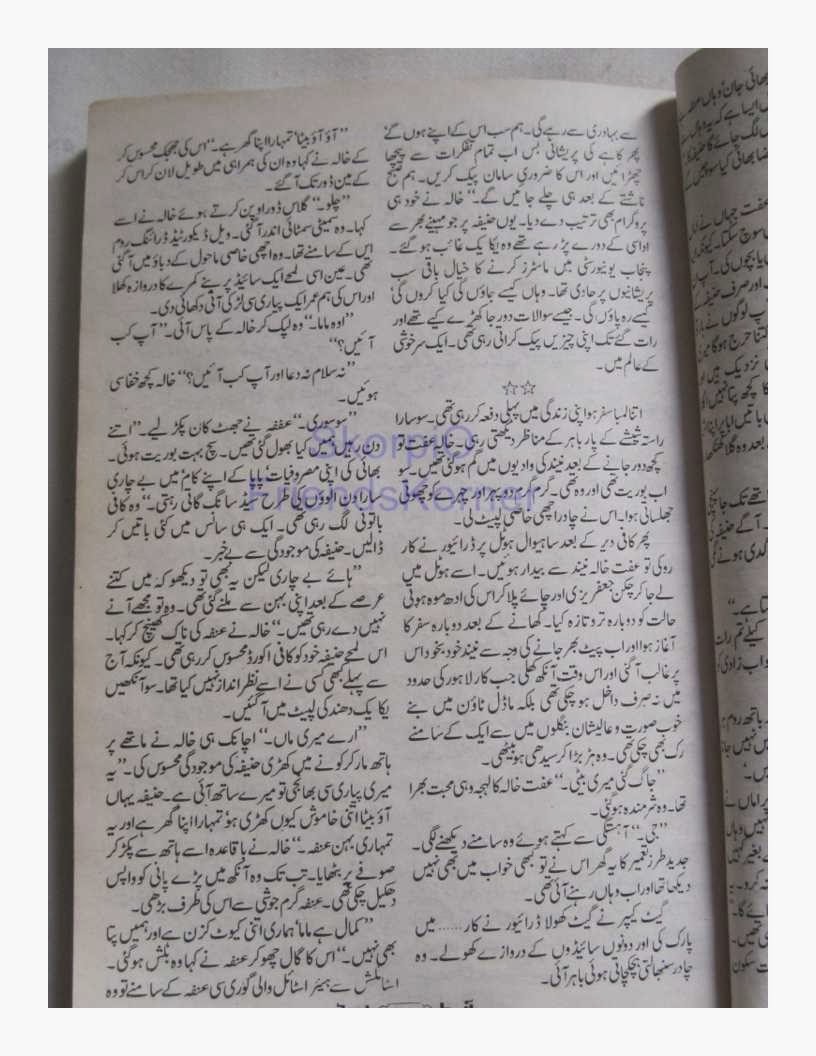 سے بہادری سے رہے گی۔ ہم سب اس کے اپنے ہوں گے
پھر کاہے کی پریشانی بس اب تمام تفکرات سے پیچھا
چھڑائیں اور اس کا ضروری سامان پیک کریں۔ ہم صبح
ناشتے کے بعد ہی چلے جائیں گے۔“ خالہ نے خود ہی
پروگرام بھی ترتیب دے دیا۔ یوں حنیفہ پر جو مہینے بھر سے
اداسی کے دورے پڑ رہے تھے وہ یکایک غائب ہو گئے۔
پنجاب یونیورسٹی میں ماسٹرز کرنے کا خیال باقی سب
پریشانیوں پر حاوی تھا۔ وہاں کیسے جاؤں گی کیا کروں گی‘
کیسے رہ پاؤں گی۔ جیسے سوالات دور جا کھڑے کیے تھے اور
رات گئے تک اپنی چیزیں پیک کراتی رہی تھی۔ ایک سرخوشی
کے عالم میں۔
☆☆
اتنا لمبا سفر ہو اپنی زندگی میں پہلی دفعہ کر رہی تھی۔ سو سارا
راستہ شیشے کے پار باہر کے مناظر دیکھتی رہی۔ خالہ عفت تو
کچھ دور جانے کے بعد نیند کی وادیوں میں گم ہو گئی تھیں۔ سو
اب بوریت تھی اور وہ تھی۔ گرم گرم دوپہر اور چہرے کو چھوتی
جھلساتی ہوا۔ اس نے چادر اچھی خاصی لپیٹ لی۔
پھر کافی دیر کے بعد ساہیوال ہوٹل پر ڈرائیور نے کار
روکی تو عفت خالہ نیند سے بیدار ہوئیں۔ اسے ہوٹل میں
لے جا کر چکن جعفریزی اور چائے پلا کر اس کی ادھ موہ ہوئی
حالت کو دوبارہ تروتازہ کیا۔ کھانے کے بعد دوبارہ سفر کا
آغاز ہوا اور اب پیٹ بھر جانے کی وجہ سے نیند خود بخود اس
پر غالب آ گئی اور اس وقت آنکھ کھلی جب کار لاہور کی حدود
میں نہ صرف داخل ہو چکی تھی بلکہ ماڈل ٹاؤن میں بنے
خوب صورت و عالیشان بنگلوں میں سے ایک کے سامنے
رک بھی چکی تھی۔ وہ ہڑبڑا کر سیدھی ہو بیٹھی۔
”جاگ گئی میری بیٹی۔“ عفت خالہ کا لہجہ وہی محبت بھرا
تھا۔ وہ شرمندہ ہو گئی۔
”جی۔“ آہستگی سے کہتے ہوئے وہ سامنے دیکھنے لگی۔
جدید طرز تعمیر کا یہ گھر اس نے تو کبھی خواب میں بھی نہیں
دیکھا تھا اور اب وہاں رہنے آئی تھی۔
گیٹ کیپر نے گیٹ کھولا ڈرائیور نے کار...... میں
پارک کی اور دونوں سائیڈوں کے دروازے کھولے۔ وہ
چادر سنبھالتی ہچکچاتی ہوئی باہر آئی۔
”آؤ آؤ بیٹا‘ تمہارا اپنا گھر ہے۔“ اس کی جھجک محسوس کر
کے خالہ نے کہا وہ ان کی ہمراہی میں طویل لان کراس کر
کے مین ڈور تک آ گئے۔
”چلو۔“ گلاس ڈور اوپن کرتے ہوئے خالہ نے اسے
کہا۔ وہ سمٹی سمٹائی اندر آ گئی۔ ویل ڈیکورٹیڈ ڈرائنگ روم
اس کے سامنے تھا۔ وہ اچھی خاصی ماحول کے دباؤ میں آ گئی
تھی۔ عین اسی لمحے ایک سائیڈ پر بنے کمرے کا دروازہ کھلا
اور اس کی ہم عمر ایک پیاری سی لڑکی آتی دکھائی دی۔
”اوہ ماما۔“ وہ لپک کر خالہ کے پاس آئی۔ ”آپ کب
آئیں؟“
”نہ سلام نہ دعا اور آپ کب آئیں؟“ خالہ کچھ خفا سی
ہوئیں۔
”سو سوری۔“ عنفہ نے جھٹ کان پکڑ لیے۔ ”اتنے
دن رہیں ہمیں کیا بھول گئی تھیں۔ سچ بہت بوریت ہوئی۔
بھائی کی اپنی مصروفیات‘ پاپا کے اپنے کام‘ میں بے چاری
سارا دن الوؤں کی طرح سیڈ سانگ گاتی رہتی۔“ وہ کافی
باتونی لگ رہی تھی۔ ایک ہی سانس میں کئی باتیں کر
ڈالیں۔ حنیفہ کی موجودگی سے بے خبر۔
”ہائے بے چاری لیکن یہ بھی تو دیکھو کہ میں کتنے
عرصے کے بعد اپنی بہن سے ملنے گئی تھی۔ وہ تو مجھے آنے
نہیں دے رہی تھیں۔“ خالہ نے عنفہ کی ناک کھینچ کر کہا۔
اس لمحے حنیفہ خود کو کافی آکورڈ محسوس کر رہی تھی۔ کیونکہ آج
سے پہلے کبھی کسی نے اسے نظر انداز نہیں کیا تھا۔ سو آنکھیں
یکایک دھند کی لپیٹ میں آ گئیں۔
”ارے میری ماں۔“ اچانک ہی خالہ نے ماتھے پر
ہاتھ مار کر کونے میں کھڑی حنیفہ کی موجودگی محسوس کی۔ ”یہ
میری پیاری سی بھانجی تو میرے ساتھ آئی ہے۔ حنیفہ یہاں
آؤ بیٹا اتنی خاموش کیوں کھڑی ہو‘ تمہارا اپنا گھر ہے اور یہ
تمہاری بہن عنفہ۔“ خالہ نے باقاعدہ اسے ہاتھ سے پکڑ کر
صوفے پر بٹھایا۔ تب تک وہ آنکھ میں بڑے پانی کو واپس
دھکیل چکی تھی۔ عنفہ گرم جوشی سے اس کی طرف بڑھی۔
”کمال ہے ماما‘ ہماری اتنی کیوٹ کزن ہے اور ہمیں پتا
بھی نہیں۔“ اس کا گال چھو کر عنفہ نے کہا وہ بلش ہو گئی۔
اسٹائلش سے ہیئر اسٹائل والی گوری سی عنفہ کے سامنے تو وہ
SkorpiO
FriendsKorner